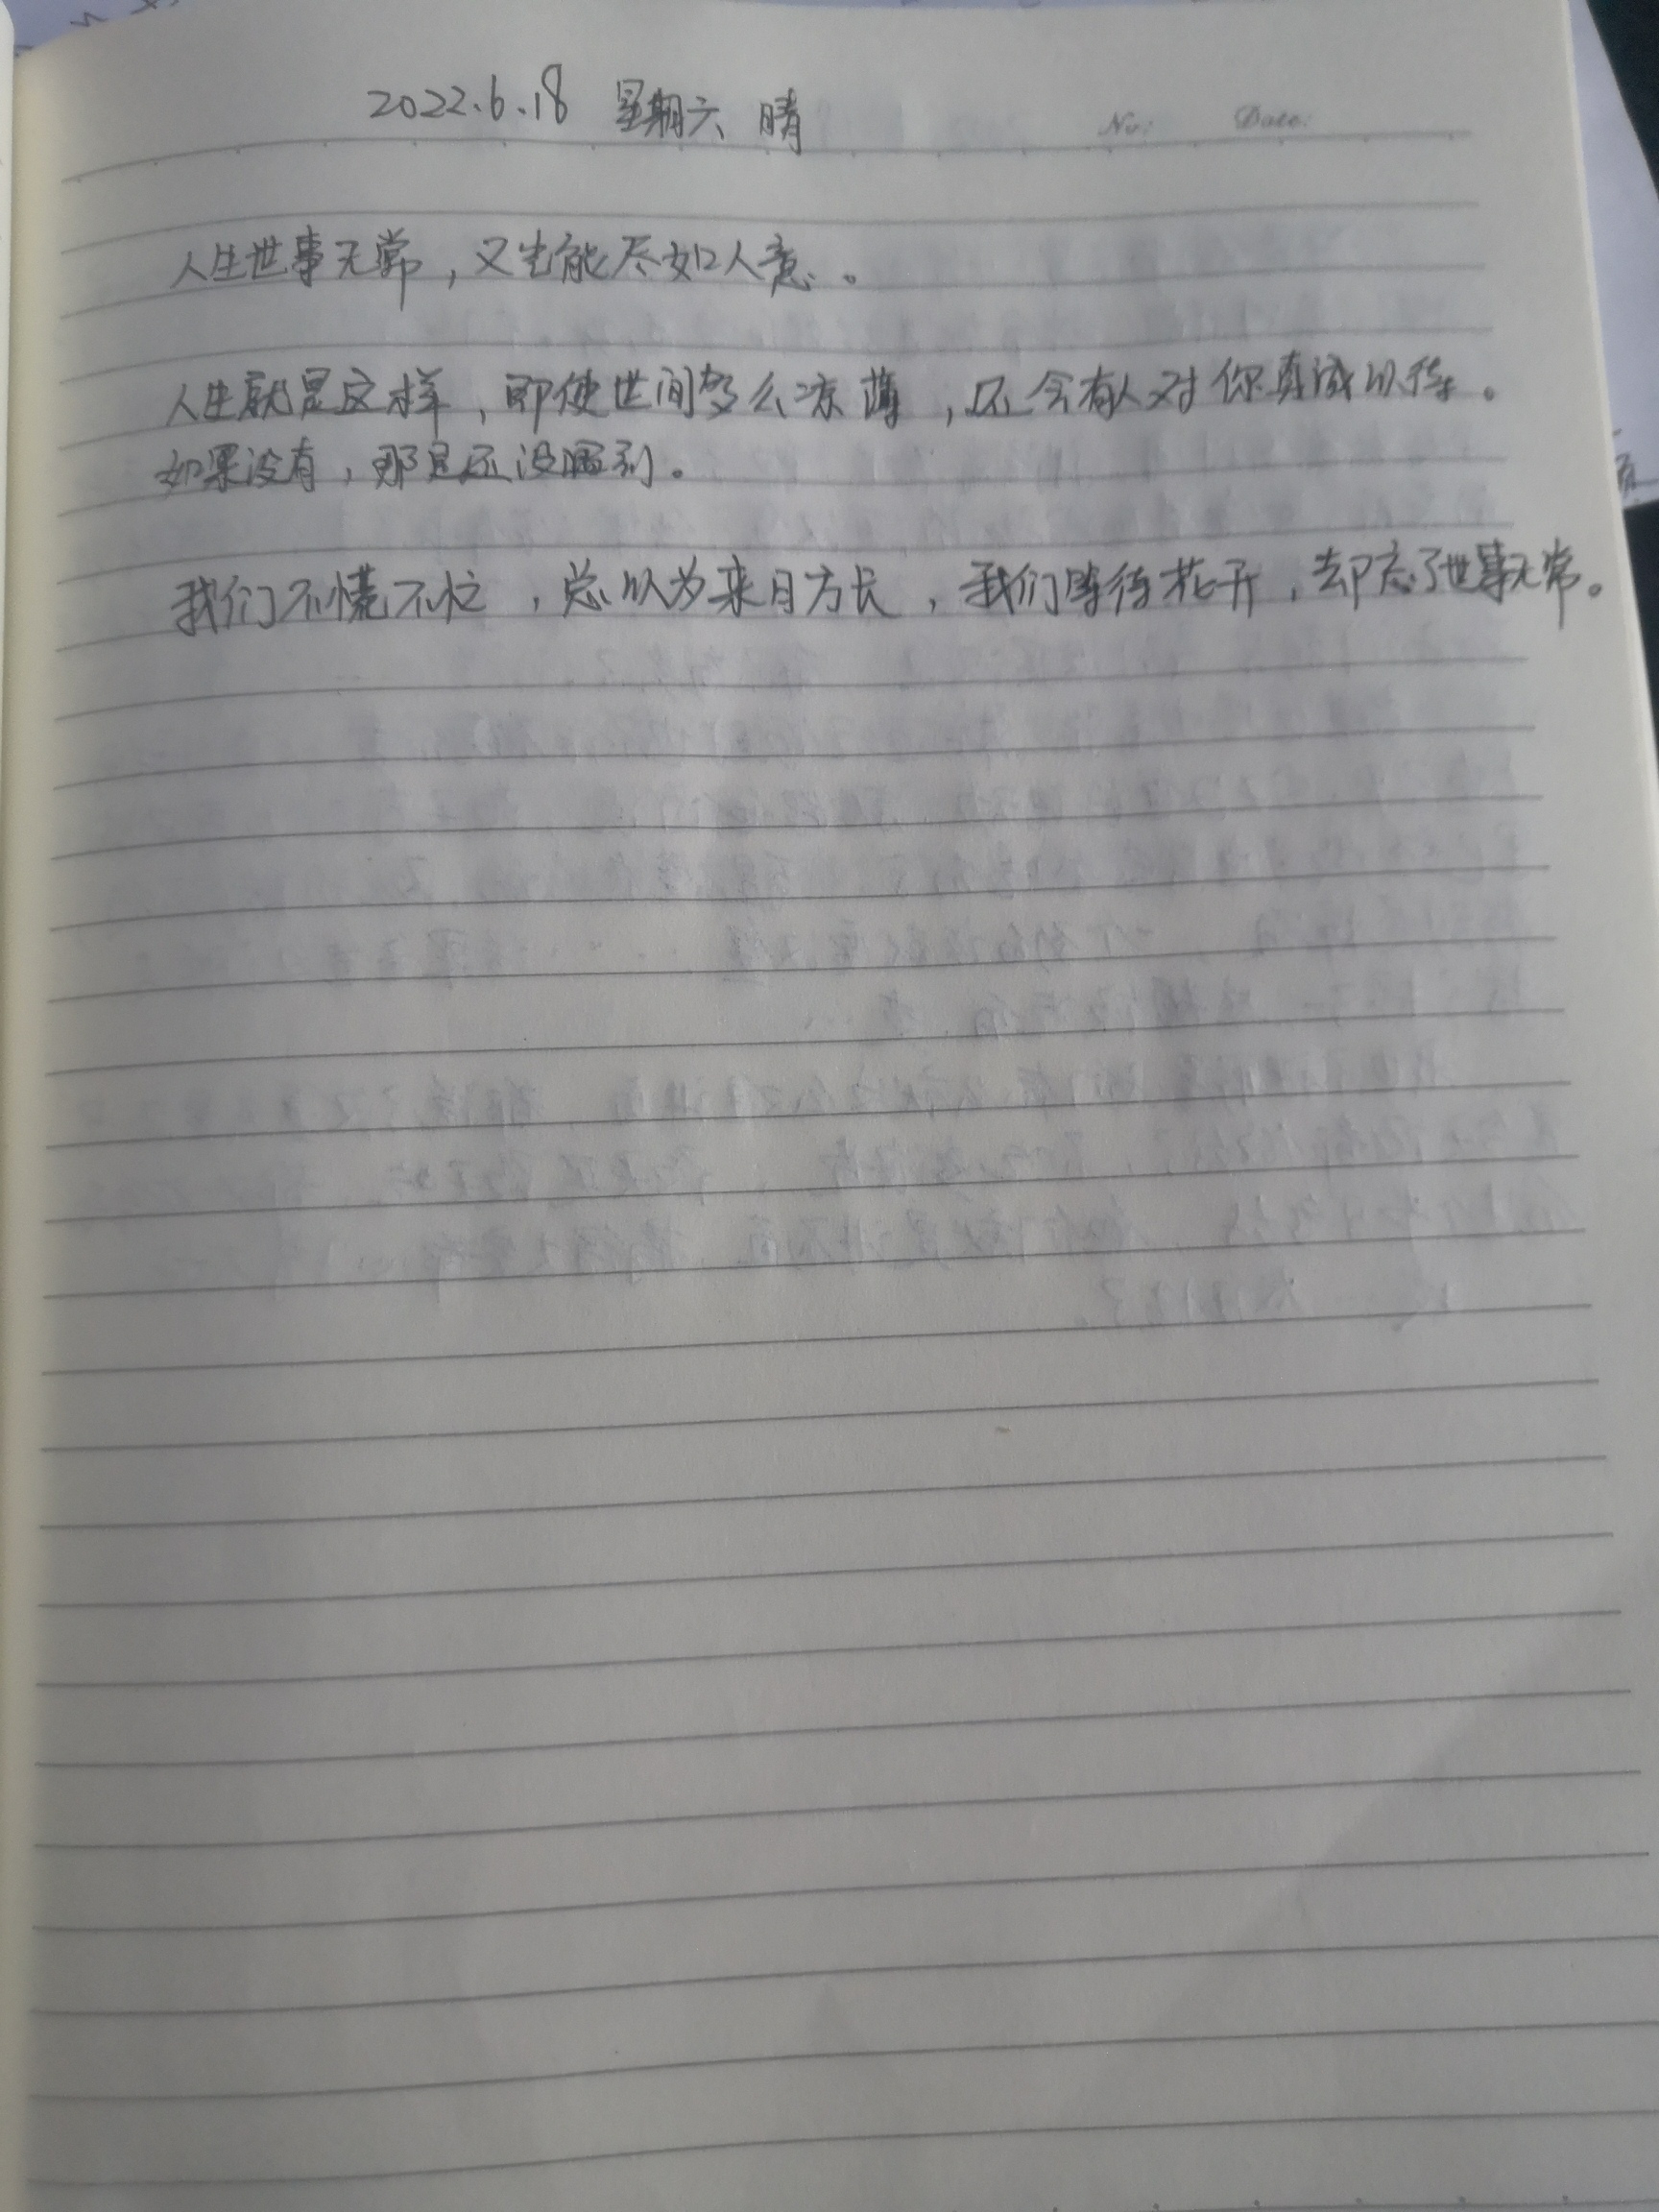 2022.6.18 星期六 晴
No: Date:
人生世事无常，又岂能尽如人意。
人生就是这样，即使世间多么凉薄，还会有人对你真诚以待。
如果没有，那是还没遇到。
我们不慌不忙，总以为来日方长，我们等待花开，却忘了世事无常。